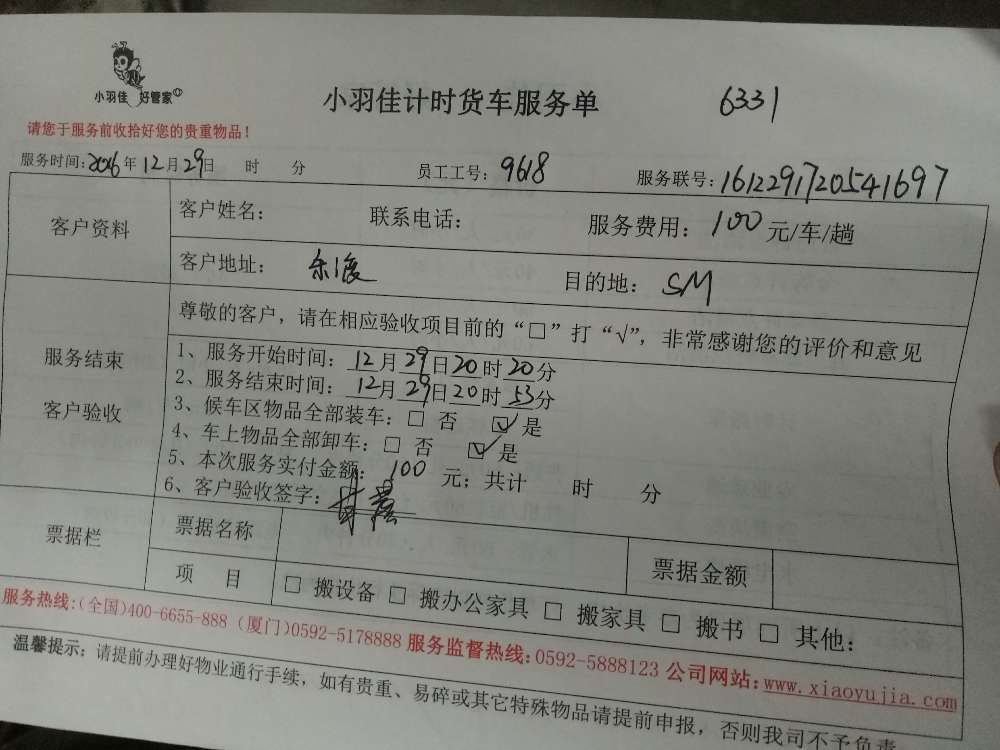 小羽佳 好管家
小羽佳计时货车服务单 6331
请您于服务前收拾好您的贵重物品!
服务时间:2016年12月29日 时 分 员工工号:9618 服务联号:1612291720541697
客户资料
客户姓名: 联系电话: 服务费用:100元/车/趟
客户地址: 目的地:SM
服务结束
客户验收
尊敬的客户,请在相应验收项目前的“□”打“√”,非常感谢您的评价和意见
1、服务开始时间:12月29日20时20分
2、服务结束时间:12月29日20时53分
3、候车区物品全部装车:□ 否 ☑ 是
4、车上物品全部卸车:□ 否 ☑ 是
5、本次服务实付金额:100 元;共计 时 分
6、客户验收签字:
票据栏
票据名称 票据金额
项 目 □ 搬设备 □ 搬办公家具 □ 搬家具 □ 搬书 □ 其他:
服务热线:(全国)400-6655-888 (厦门)0592-5178888 服务监督热线:0592-5888123 公司网站:www.xiaoyujia.com
温馨提示:请提前办理好物业通行手续,如有贵重、易碎或其它特殊物品请提前申报,否则我司不予负责